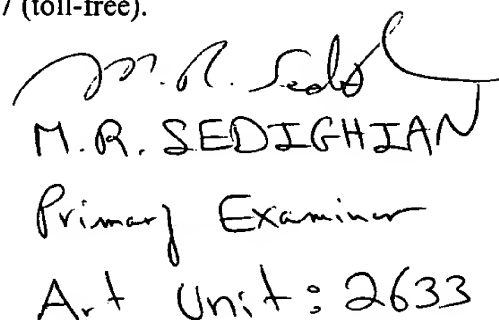 7 (toll-free).
M. R. Sedi
M.R. SEDIGHIAN
Primary Examiner
Art Unit: 2633